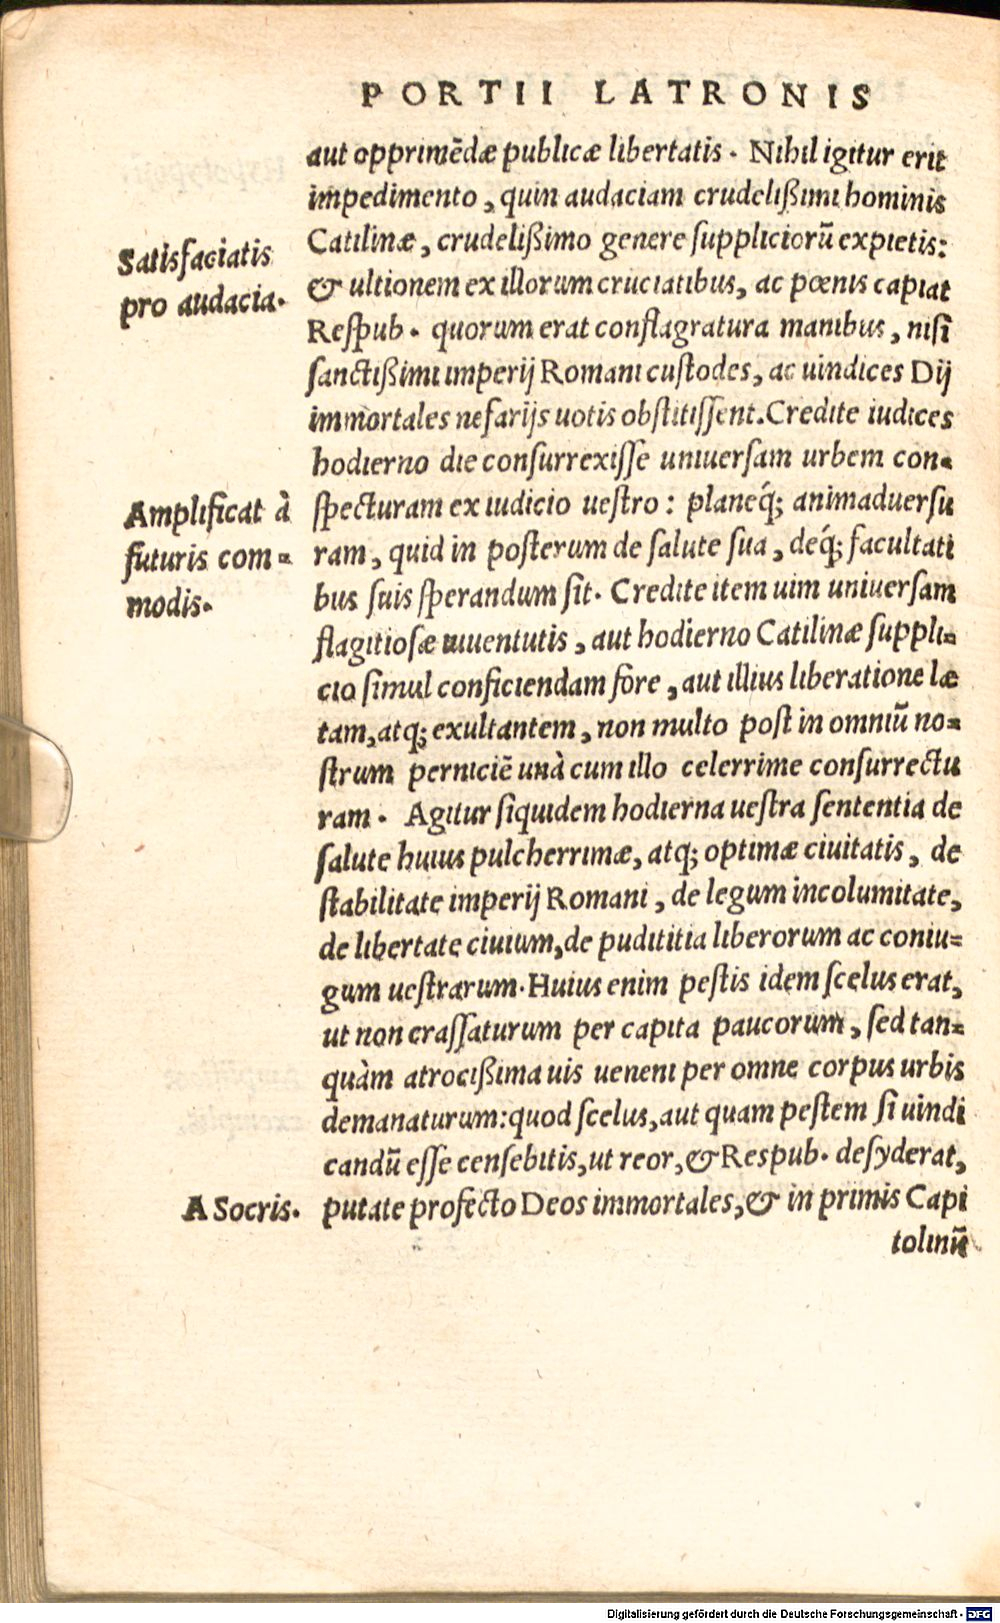 PORTII LATRONIS
aut opprimēdæ publicæ libertatis. Nihil igitur erit
impedimento, quin audaciam crudelißimi hominis
Catilinæ, crudelißimo genere suppliciorū expietis:
Satisfaciatis
pro audacia.
& ultionem ex illorum cruciatibus, ac pœnis capiat
Respub. quorum erat conflagratura manibus, nisi
sanctißimi imperij Romani custodes, ac uindices Dij
immortales nefarijs uotis obstitissent. Credite iudices
hodierno die consurrexisse uniuersam urbem con-
Amplificat à
futuris com-
modis.
specturam ex iudicio uestro: planeq́; animaduersu
ram, quid in posterum de salute sua, deq́; facultati
bus suis sperandum sit. Credite item uim uniuersam
flagitiosæ iuuentutis, aut hodierno Catilinæ suppli-
cio simul conficiendam fore, aut illius liberatione læ
tam, atq; exultantem, non multo post in omniū no-
strum perniciē unà cum illo celerrime consurrectu
ram. Agitur siquidem hodierna uestra sententia de
salute huius pulcherrimæ, atq; optimæ ciuitatis, de
stabilitate imperij Romani, de legum incolumitate,
de libertate ciuium, de pudititia liberorum ac coniu-
gum uestrarum. Huius enim pestis idem scelus erat,
ut non crassaturum per capita paucorum, sed tan-
quàm atrocißima uis ueneni per omne corpus urbis
demanaturum: quod scelus, aut quam pestem si uindi
candū esse censebitis, ut reor, & Respub. desyderat,
A Socris.
putate profecto Deos immortales, & in primis Capi
tolinū
Digitalisierung gefördert durch die Deutsche Forschungsgemeinschaft - DFG